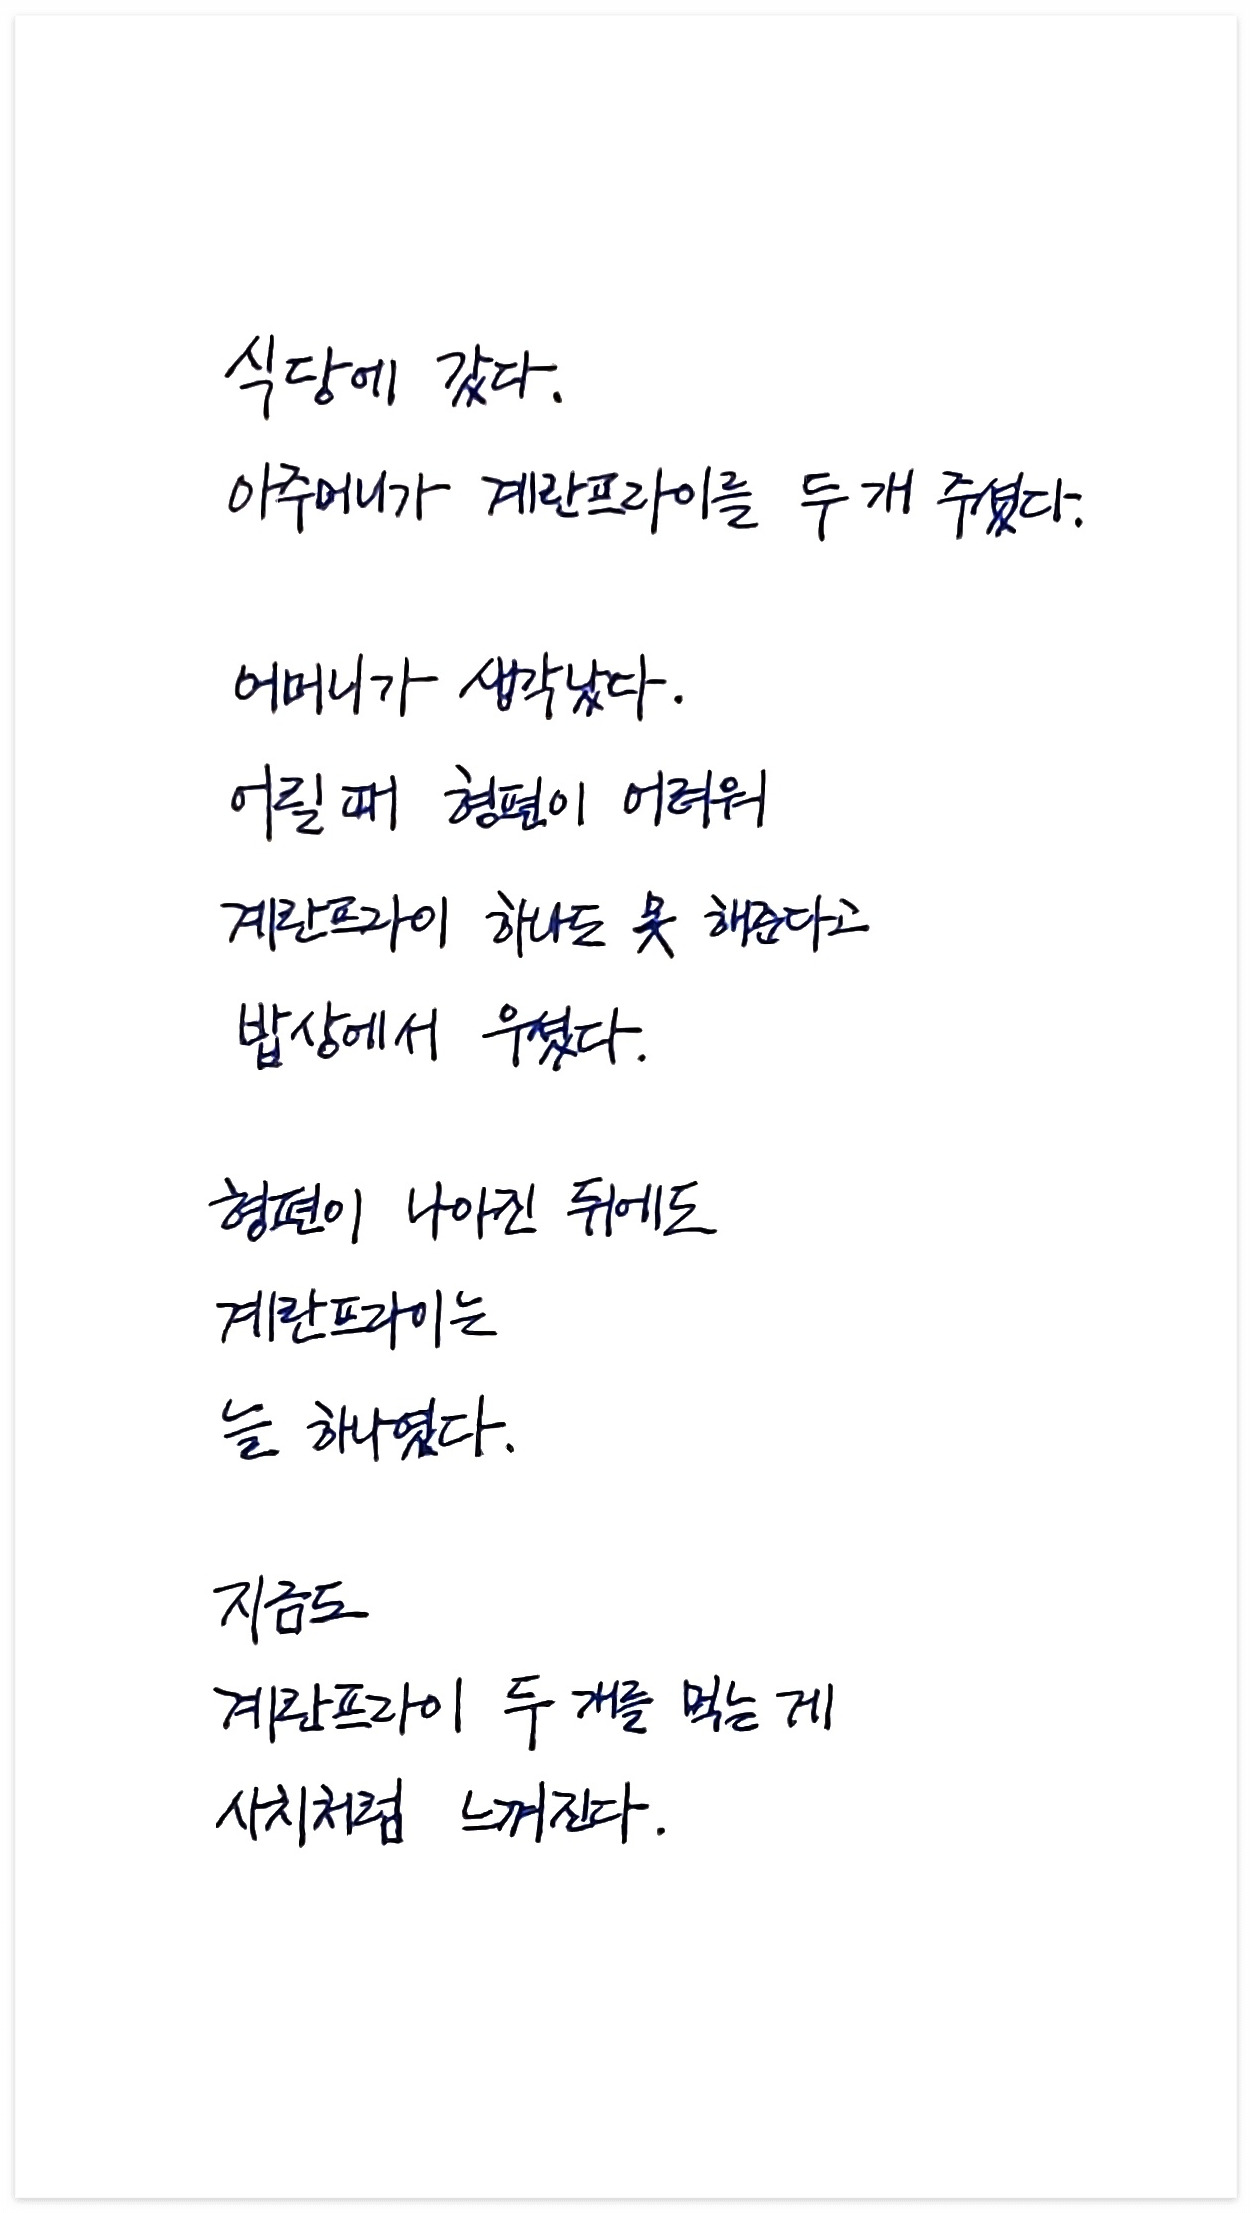 식당에 갔다.
아주머니가 계란프라이를 두 개 주셨다.
어머니가 생각났다.
어릴 때 형편이 어려워
계란프라이 하나도 못 해준다고
밥상에서 우셨다.
형편이 나아진 뒤에도
계란프라이는
늘 하나였다.
지금도
계란프라이 두 개를 먹는 게
사치처럼 느껴진다.